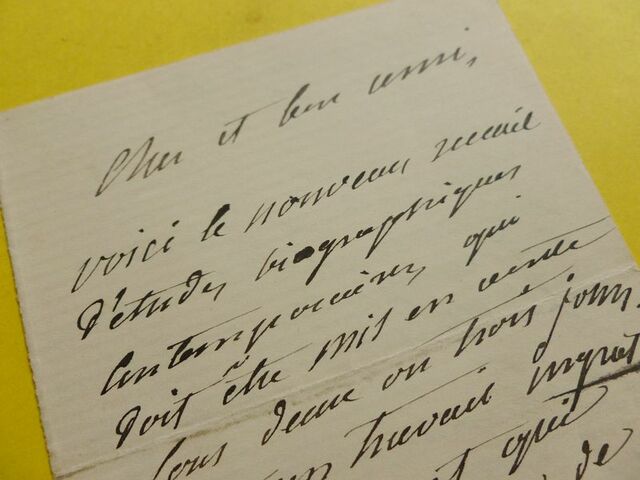 Cher et bon ami,
voici le nouveau recueil
d'études biographiques
contemporaines qui
doit être mis en vente
sous deux ou trois jours.
un travail ingrat
et qui
de